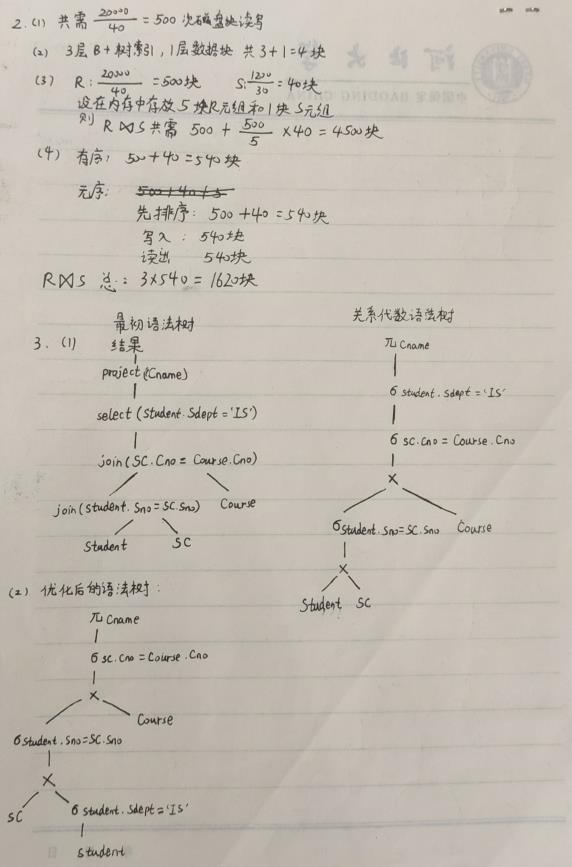 2. (1) 共需 20000/40 = 500 次磁盘块读写
(2) 3层B+树索引, 1层数据块 共3+1=4块
(3) R: 20000/40 = 500块 S: 1200/30 = 40块
设在内存中存放5块R元组和1块S元组
则 R⋈S 共需 500 + 500/5 ×40 = 4500块
(4) 有序: 500+40=540块
无序: 500+40+5
先排序: 500+40=540块
写入: 540块
读出 540块
R⋈S 总: 3×540 = 1620块
3. (1) 最初语法树
结果
project(Cname)
select (Student.Sdept='IS')
join(SC.Cno = Course.Cno)
join(Student.Sno=SC.Sno) Course
Student SC
关系代数语法树
π Cname
σ Student.Sdept='IS'
σ SC.Cno=Course.Cno
×
σ Student.Sno=SC.Sno Course
×
Student SC
(2) 优化后的语法树:
π Cname
σ SC.Cno=Course.Cno
×
σ Student.Sno=SC.Sno Course
×
SC σ Student.Sdept='IS'
Student